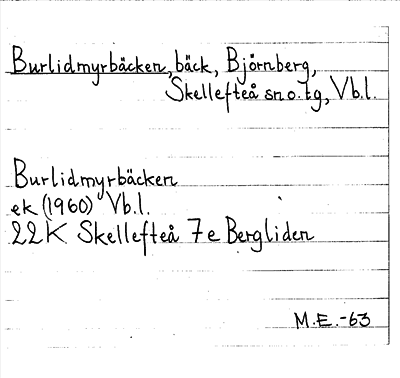 Burlidmyrbäcken, bäck, Björnberg,
Skellefteå sn o. tg, Vb.l.
Burlidmyrbäcken
ek (1960) Vb.l.
22K Skellefteå 7e Bergliden
M.E.-63